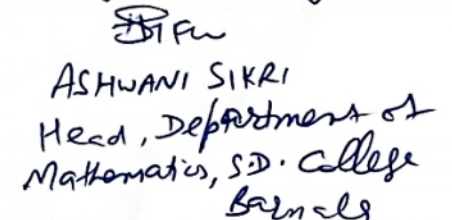 ASHWANI SIKRI
Head, Department of
Mathematics, S.D. College
Barnala